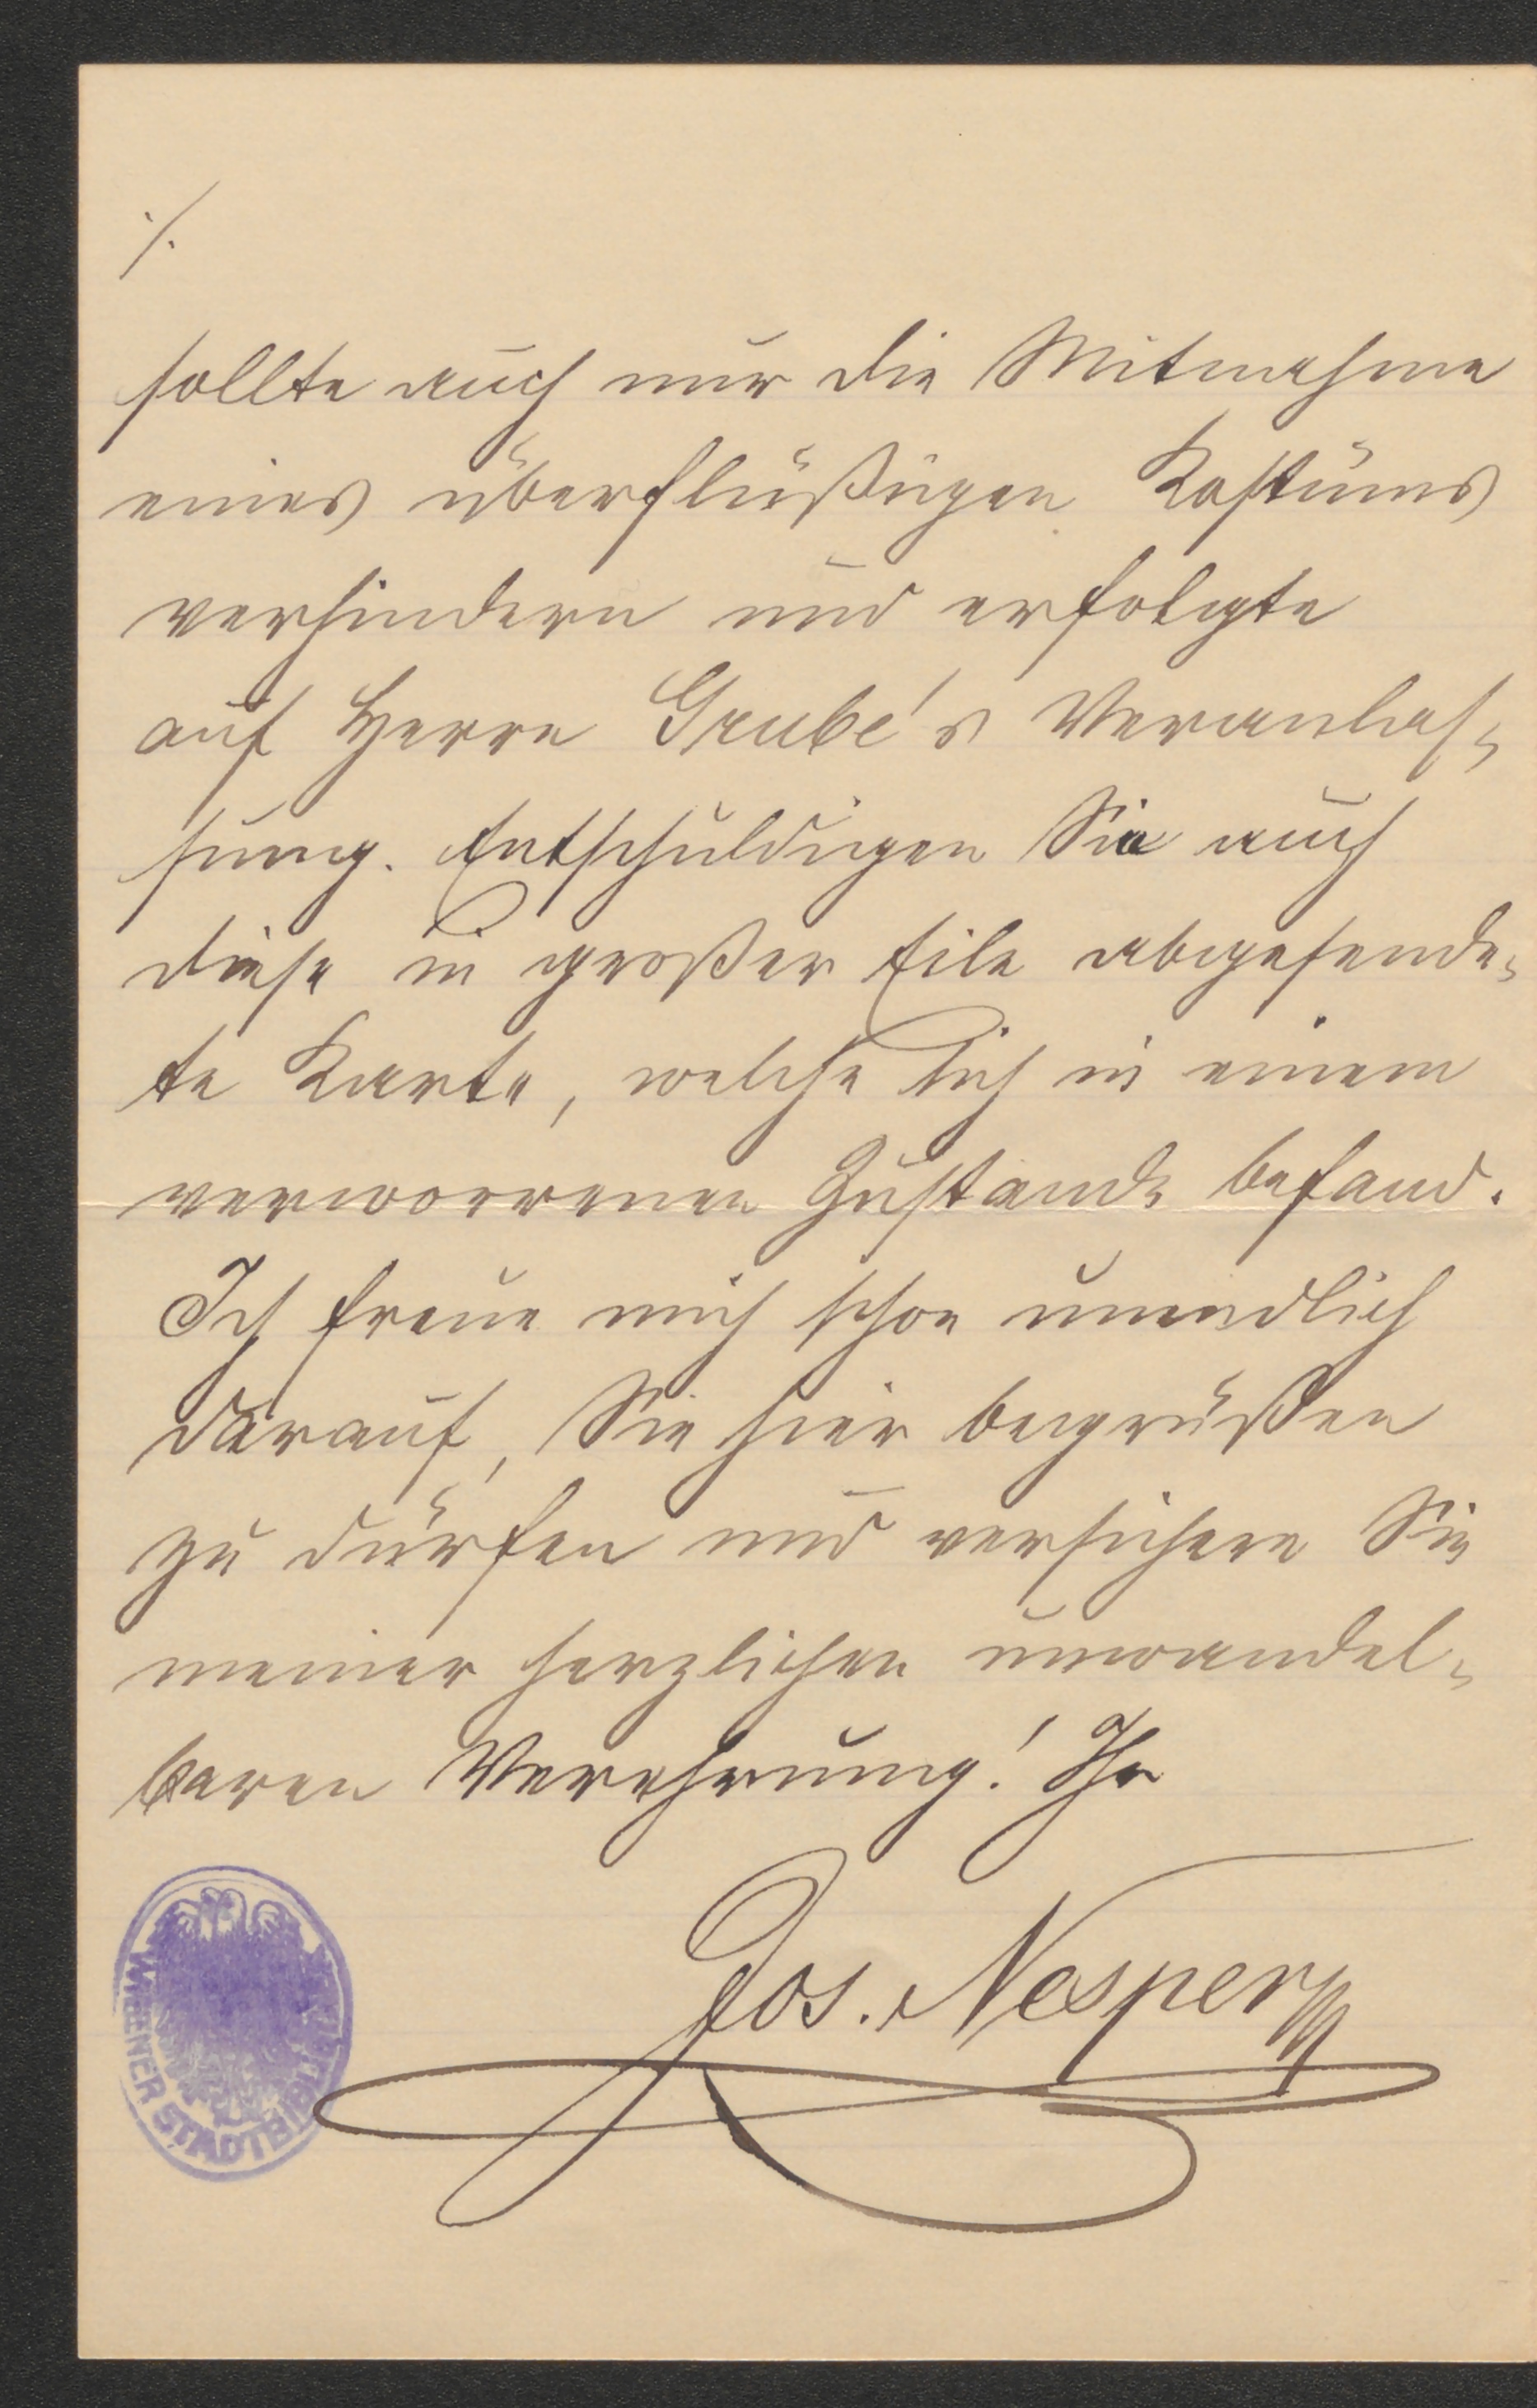 ./.
sollte auch nur die Mitnahme
eines überflüßigen Kostüms
verhindern und erfolgte
auf Herrn Grube's Veranlas-
sung. Entschuldigen Sie auch
diese in großer Eile abgesende-
te Karte, welche sich in einem
verworrenen Zustande befand.
Ich freue mich schon unendlich
darauf, Sie hier begrüßen
zu dürfen und versichere Sie
meiner herzlichen unwandel-
baren Verehrung! Ihr
Jos. Nesper
WIENER STADTBIBLIOTHEK